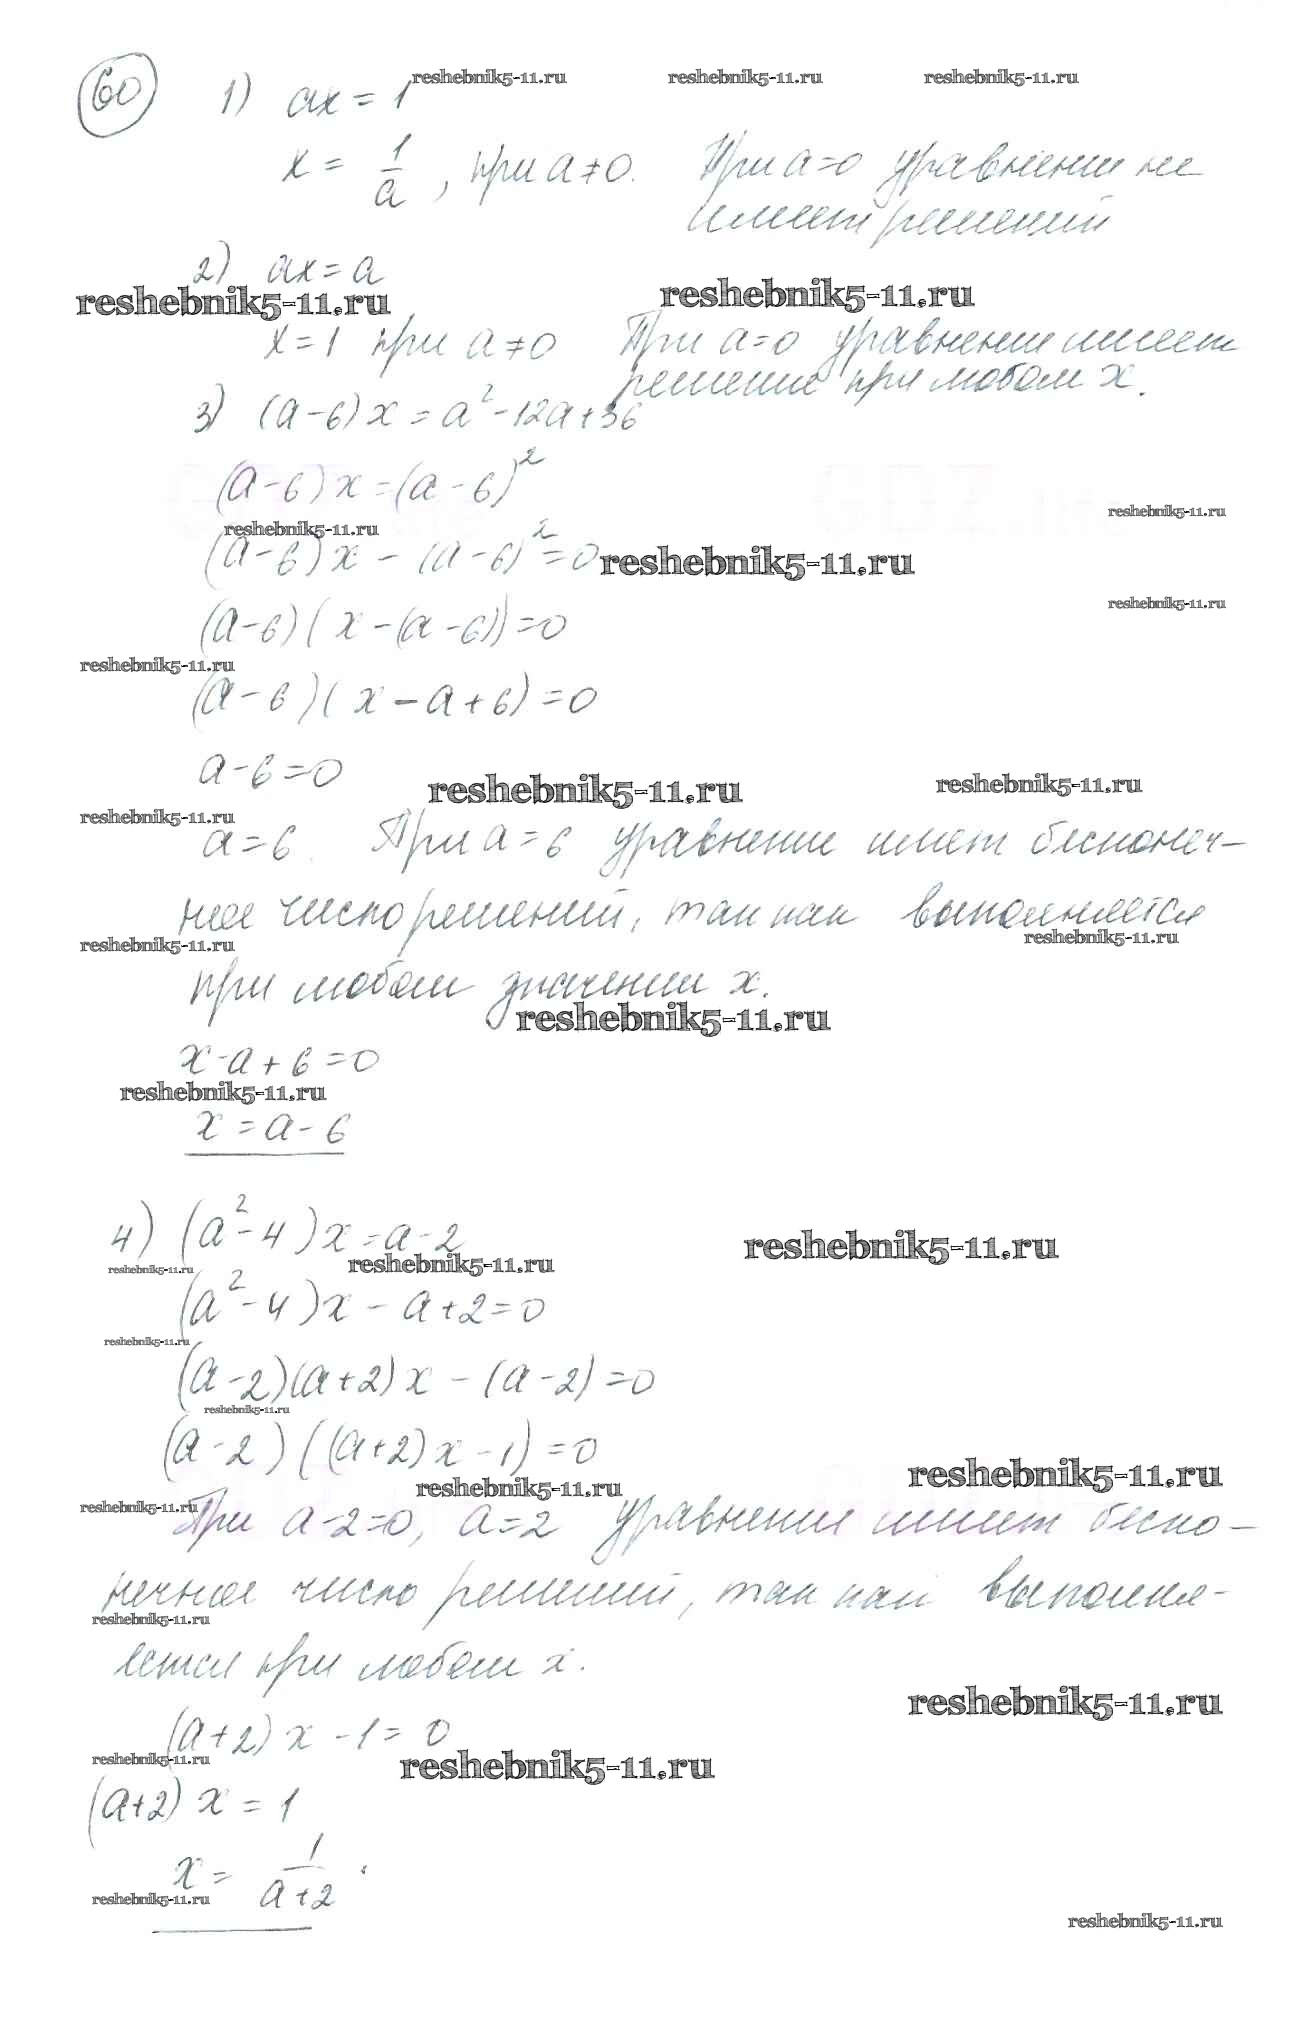 60 1) ax = 1 reshebnik5-11.ru reshebnik5-11.ru reshebnik5-11.ru
x = 1/a, при a ≠ 0. При a=0 уравнение не
имеет решений
2) ax = a
reshebnik5-11.ru reshebnik5-11.ru
x = 1 при a ≠ 0 При a=0 уравнение имеет
решение при любом x.
3) (a-6)x = a² - 12a + 36
(a-6)x = (a-6)²
reshebnik5-11.ru
reshebnik5-11.ru
(a-6)x - (a-6)² = 0 reshebnik5-11.ru
reshebnik5-11.ru
(a-6)(x-(a-6)) = 0
reshebnik5-11.ru
(a-6)(x-a+6) = 0
a-6=0
reshebnik5-11.ru reshebnik5-11.ru
reshebnik5-11.ru
a=6. При a=6 уравнение имеет бесконеч-
ное число решений, так как выполняется
reshebnik5-11.ru reshebnik5-11.ru
при любом значении x.
reshebnik5-11.ru
x-a+6=0
reshebnik5-11.ru
x = a-6
4) (a²-4)x = a-2
reshebnik5-11.ru
reshebnik5-11.ru reshebnik5-11.ru
(a²-4)x - a+2=0
reshebnik5-11.ru
(a-2)(a+2)x - (a-2) = 0
reshebnik5-11.ru
(a-2)((a+2)x-1) = 0
reshebnik5-11.ru reshebnik5-11.ru
reshebnik5-11.ru
При a-2=0, a=2 уравнение имеет беско-
нечное число решений, так как выполня-
reshebnik5-11.ru
ется при любом x.
reshebnik5-11.ru
(a+2)x-1=0
reshebnik5-11.ru reshebnik5-11.ru
(a+2)x = 1
x = 1/(a+2).
reshebnik5-11.ru
reshebnik5-11.ru